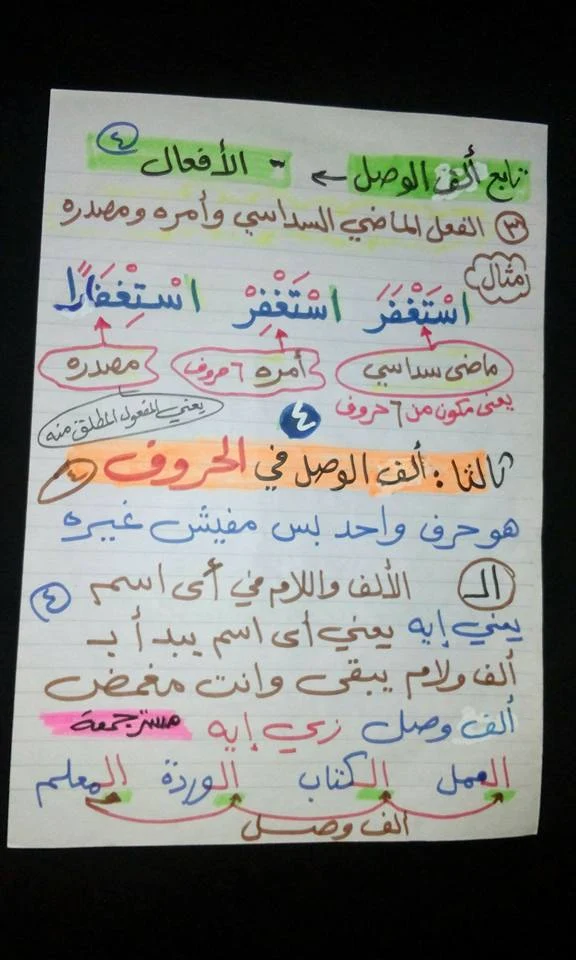 ٤
تابع ألف الوصل ← - الأفعال
٣ الفعل الماضي السداسي وأمره ومصدره
مثال
اسْتَغْفَرَ اسْتَغْفِرْ اسْتِغْفَارًا
ماضى سداسي أمره ٦ حروف مصدره
يعنى مكون من ٦ حروف يعني المفعول المطلق منه
٤
ثالثا: ألف الوصل في الحروف ٤
هو حرف واحد بس مفيش غيره
الـ الألف واللام في أى اسم
يعني إيه يعني أى اسم يبدأ بـ ٤
ألف ولام يبقى وانت مغمض
ألف وصل زي إيه مسترجمعة
العمل الكتاب الوردة المعلم
ألف وصل